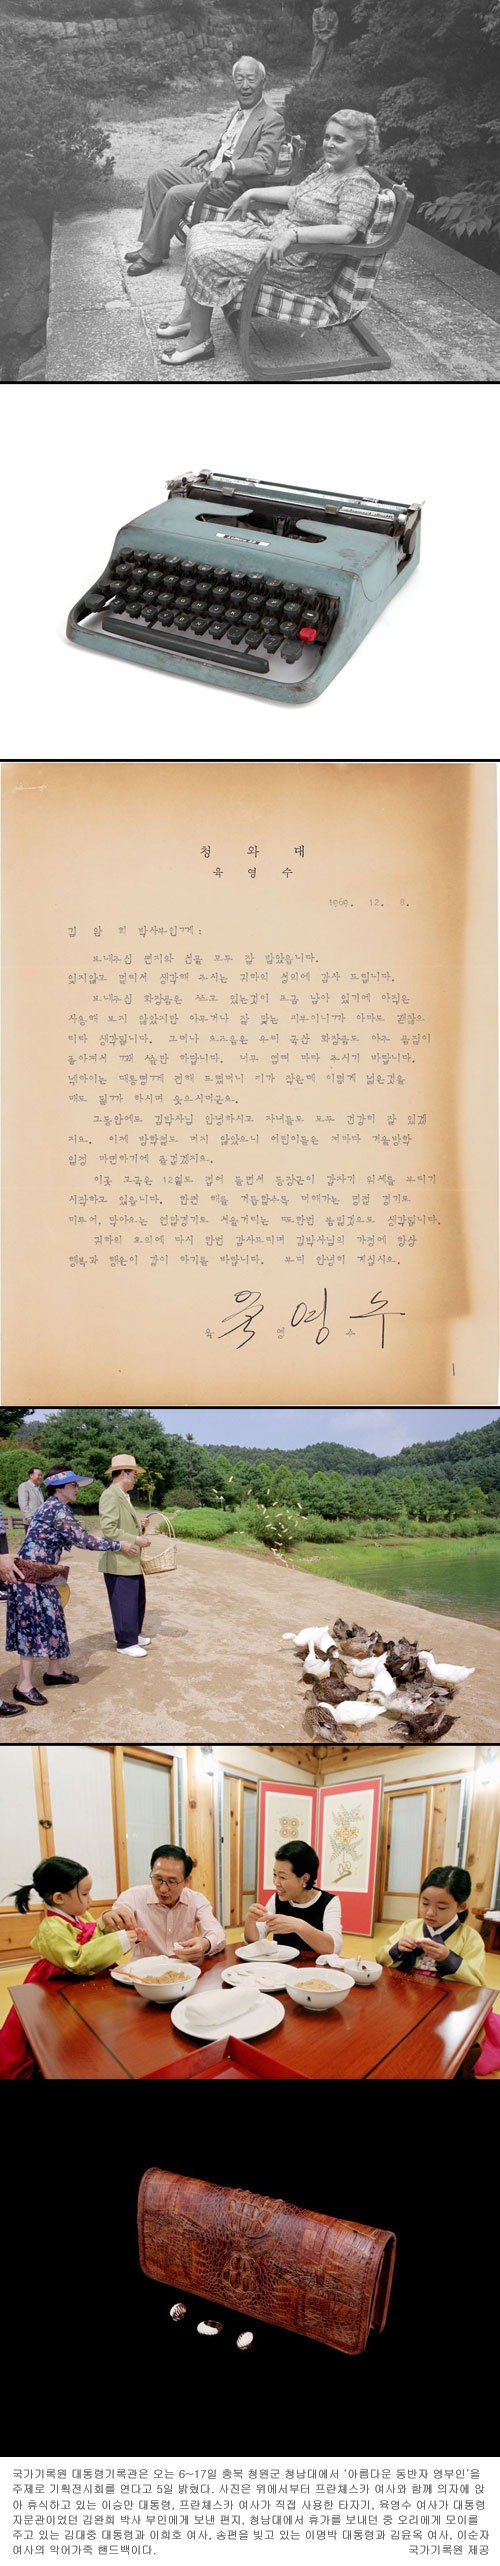 Lettera 22
청 와 대
육 영 수
1969. 12. 8.
김 완 희 박사부인께:
보내주신 편지와 선물 모두 잘 받았습니다.
잊지않고 멀리서 생각해 주시는 귀하의 성의에 감사 드립니다.
보내주신 화장품은 쓰고 있는것이 조금 남아 있기에 아직은
사용해 보지 않았지만 아무거나 잘 맞는 피부이니까 아마도 괜찮으
리라 생각됩니다. 그러나 요즈음은 우리 국산 화장품도 아주 품질이
좋아져서 쓸만 하답니다. 너무 염려 마아 주시기 바랍니다.
넥타이는 대통령께 전해 드렸더니 키가 작은데 이렇게 넓은것을
매도 될까 하시며 웃으시더군요.
그동안에도 김박사님 안녕하시고 자녀들도 모두 건강히 잘 있겠
지요. 이제 방학철도 머지 않았으니 어린이들은 저마다 겨울방학
일정 마련하기에 즐겁겠지요.
이곳 고국은 12월도 접어 들면서 동장군이 갑자기 위세를 부리기
시작하고 있습니다. 한편 해를 거듭할수록 더해가는 명절 경기로
미루어, 닥아오는 연말경기도 서울거리는 또한번 붐빌것으로 생각됩니다.
귀하의 호의에 다시 한번 감사드리며 김박사님의 가정에 항상
행복과 행운이 같이 하기를 바랍니다. 부디 안녕히 계십시요.
육 영 수
육 영 수
국가기록원 대통령기록관은 오는 6~17일 충북 청원군 청남대에서 ‘아름다운 동반자 영부인’을
주제로 기획전시회를 연다고 5일 밝혔다. 사진은 위에서부터 프란체스카 여사와 함께 의자에 앉
아 휴식하고 있는 이승만 대통령, 프란체스카 여사가 직접 사용한 타자기, 육영수 여사가 대통령
자문관이었던 김완희 박사 부인에게 보낸 편지, 청남대에서 휴가를 보내던 중 오리에게 모이를
주고 있는 김대중 대통령과 이희호 여사, 송편을 빚고 있는 이명박 대통령과 김윤옥 여사, 이순자
여사의 악어가죽 핸드백이다. 국가기록원 제공